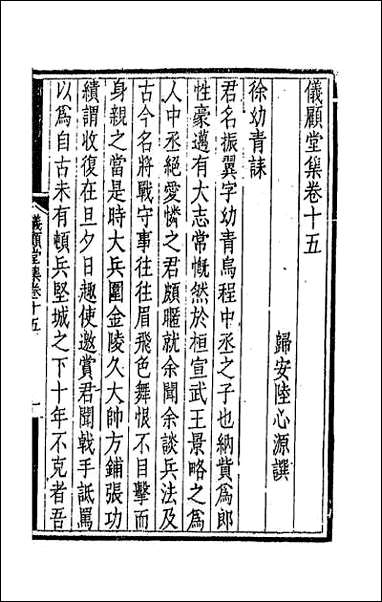 儀顧堂集卷十五
歸安陸心源譔
徐幼青誄
君名振翼字幼青烏程中丞之子也納貲為郎
性豪邁有大志常慨然於桓宣武王景略之為
人中丞絕愛憐之君頗暱就余聞余談兵法及
古今名將戰守事往往眉飛色舞恨不目擊而
身親之當是時大兵圍金陵久大帥方鋪張功
績謂收復在旦夕日趣使邀賞君聞戟手詆罵
以為自古未有頓兵堅城之下十年不克者吾
儀顧堂集卷十五
一